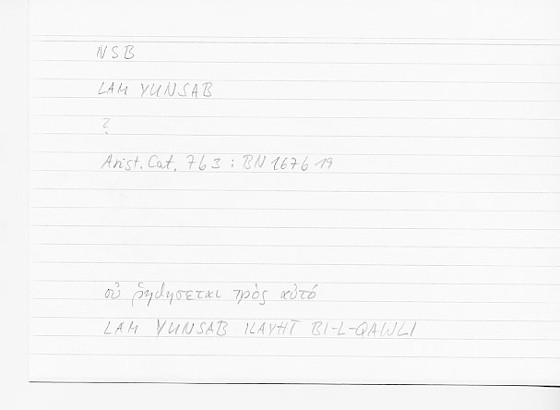 NSB
LAM YUNSAB
?
Arist. Cat. 7b3 : BN 167b19
οὐ ῥηθήσεται πρὸς αὐτό
LAM YUNSAB ILAYHI BI-L-QAWLI